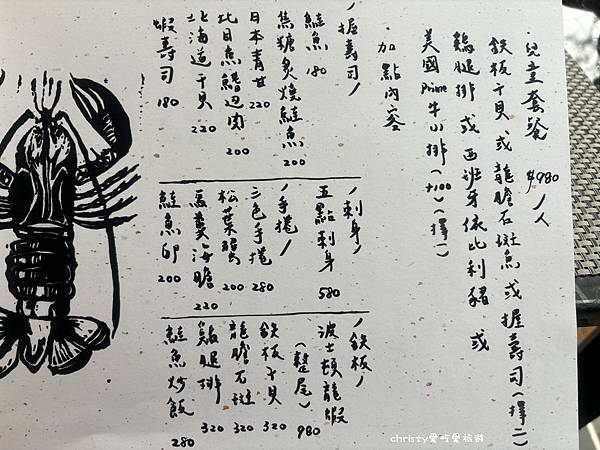 ．兒童套餐 $980／人
鉄板干貝 或 龍膽石斑魚 或 握壽司(擇二)
鷄腿排 或 西班牙依比利豬 或
美國prime牛小排(+100)(擇一)
．加點內容
／握壽司／
鮭魚 180
焦糖炙燒鮭魚 200
日本青甘 220
比目魚鰭邊肉 200
北海道干貝 220
蝦壽司 180
／刺身／
五點刺身 580
／手捲／
三色手捲 280
松葉蟹 200
馬糞海膽 220
鮭魚卵 200
／鉄板／
波士頓龍蝦(整尾) 980
鉄板干貝 320
龍膽石斑 320
鷄腿排 320
鮭魚炒飯 280
christy愛吃愛旅遊